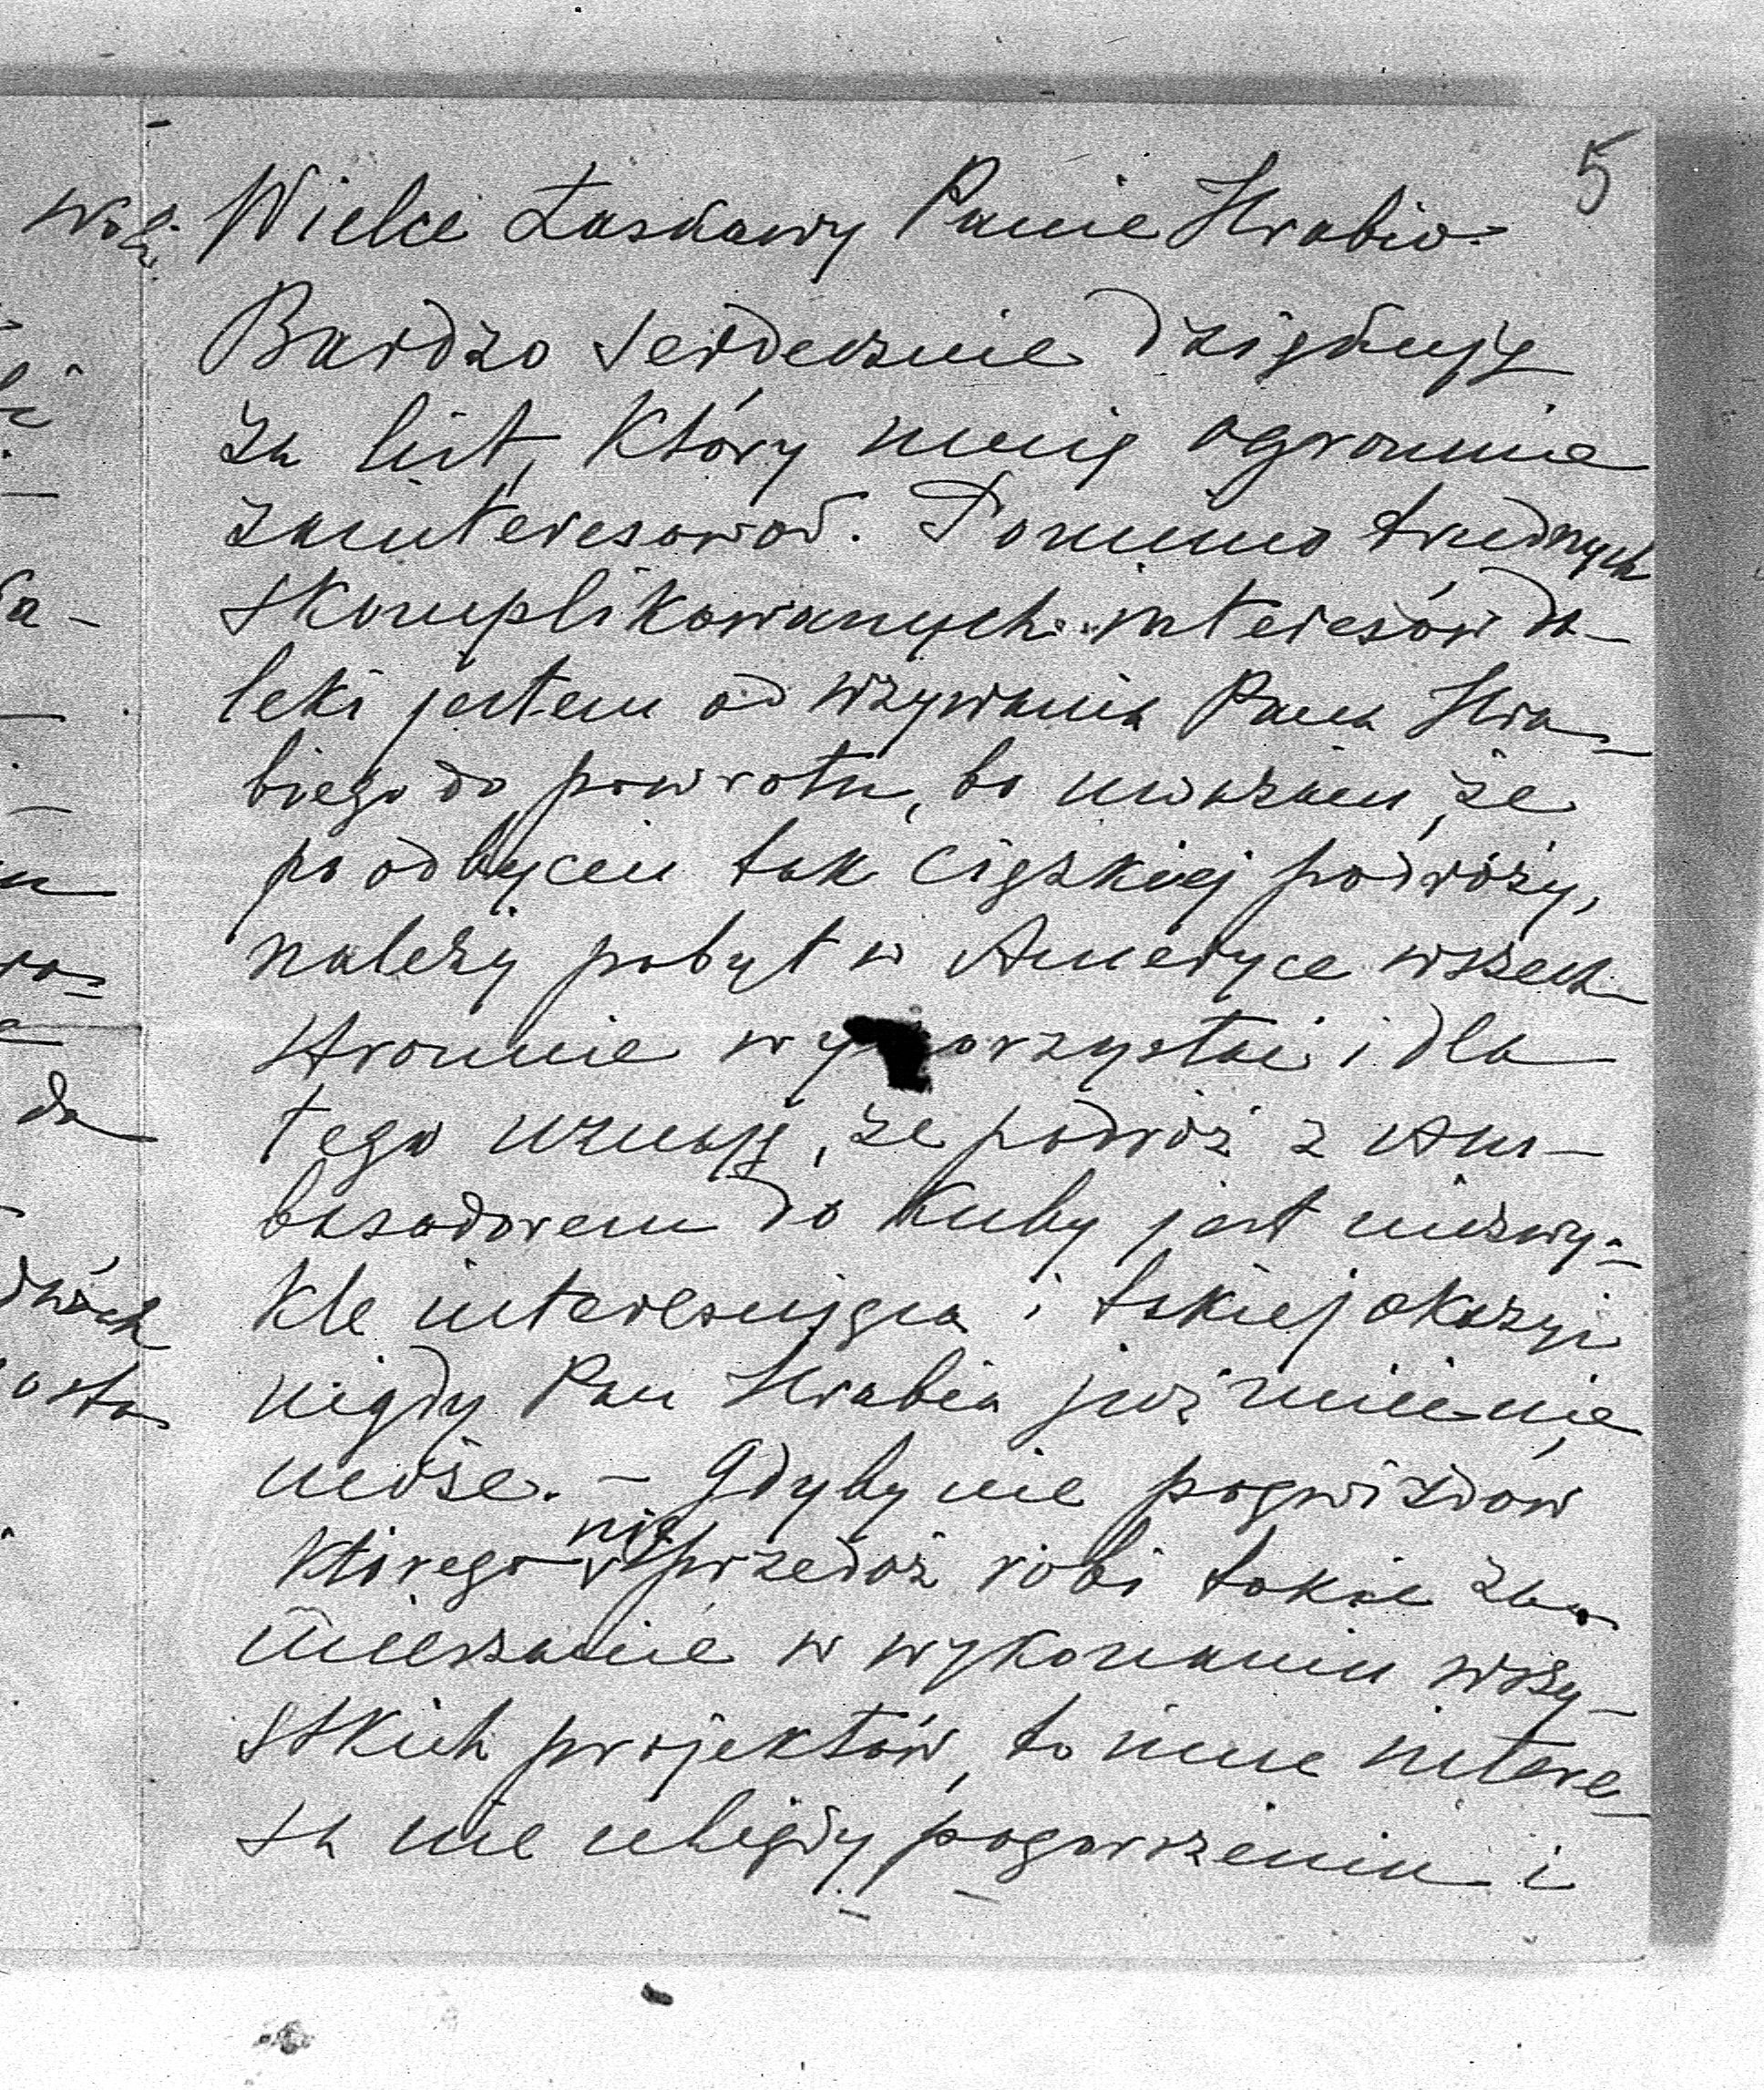 5
Wielce Łaskawy Panie Hrabio
Bardzo serdecznie dziękuję
za list, który mnię ogromnie
zainteresował. Pomimo trudnych
skomplikowanych interesów da-
leki jestem od wzywania Pana Hra-
biego do powrotu, bo uważam, że
po odbyciu tak ciężkiej podróży,
należy pobyt w Ameryce wszech
stronnie wykorzystać i dla
tego uznaję, że podróż z Am-
basadorem do Kuby jest niezwy-
kle interesująca i takiej okazyi
nigdy Pan Hrabia już mieć nie
może. – Gdyby nie pogwizdów
którego nie sprzedaż robi takie za-
mieszanie w wykonaniu wszy-
stkich projektów, to inne intere-
sa nie uległy pogorszeniu i